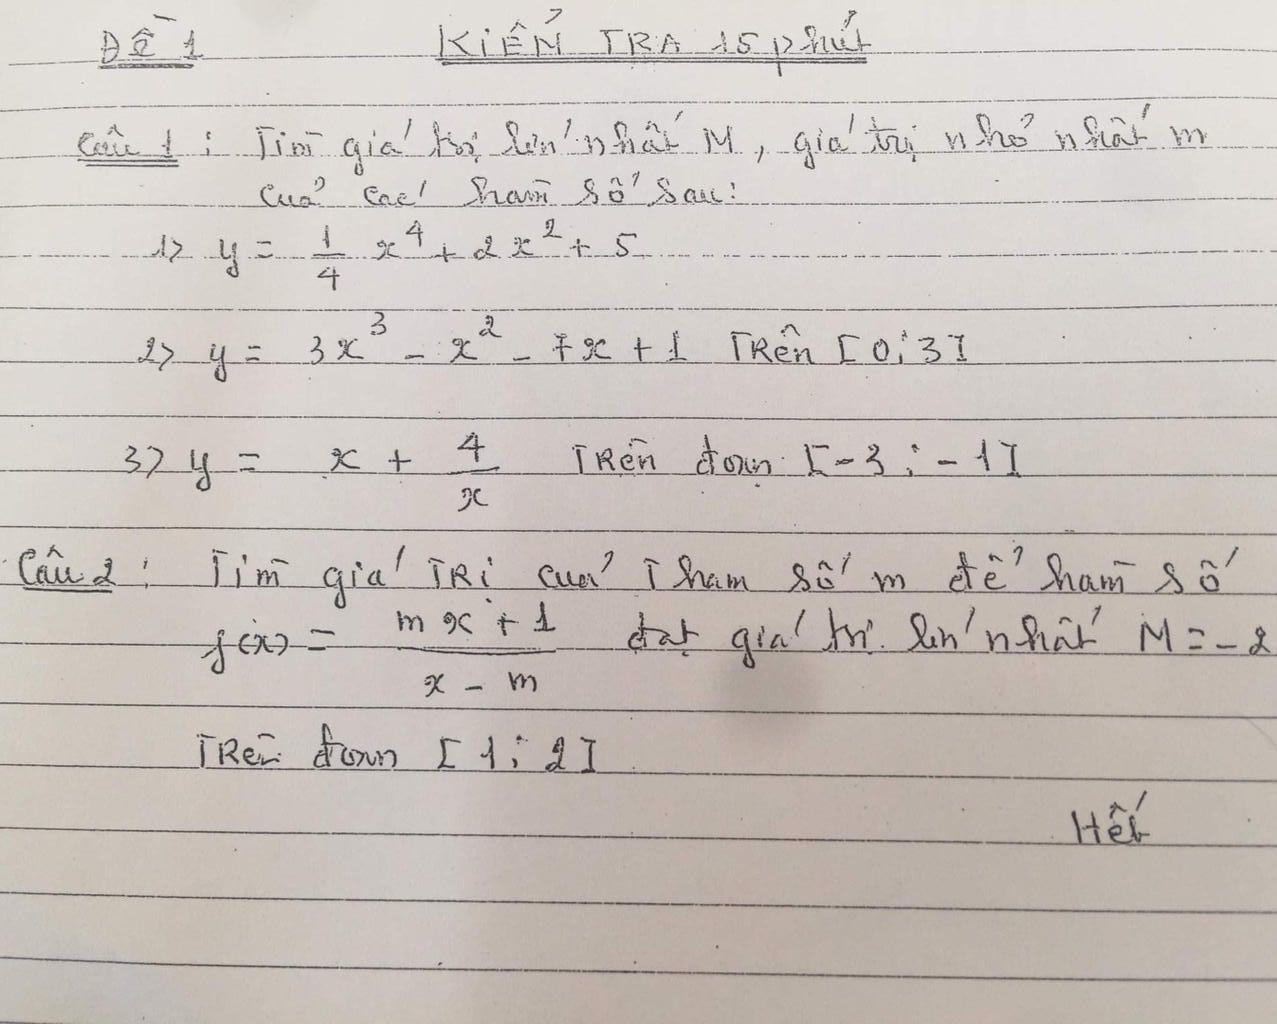 Đề 1 KIỂM TRA 15 phút
Câu 1 : Tìm giá trị lớn nhất M, giá trị nhỏ nhất m
của các hàm số sau:
1> y = 1/4 x^4 + 2x^2 + 5
2> y = 3x^3 - x^2 - 7x + 1 Trên [0;3]
3> y = x + 4/x Trên đoạn [-3;-1]
Câu 2 : Tìm giá Trị của Tham số m để hàm số
f(x) = (mx + 1)/(x - m) đạt giá trị lớn nhất M = -2
Trên đoạn [1;2]
Hết